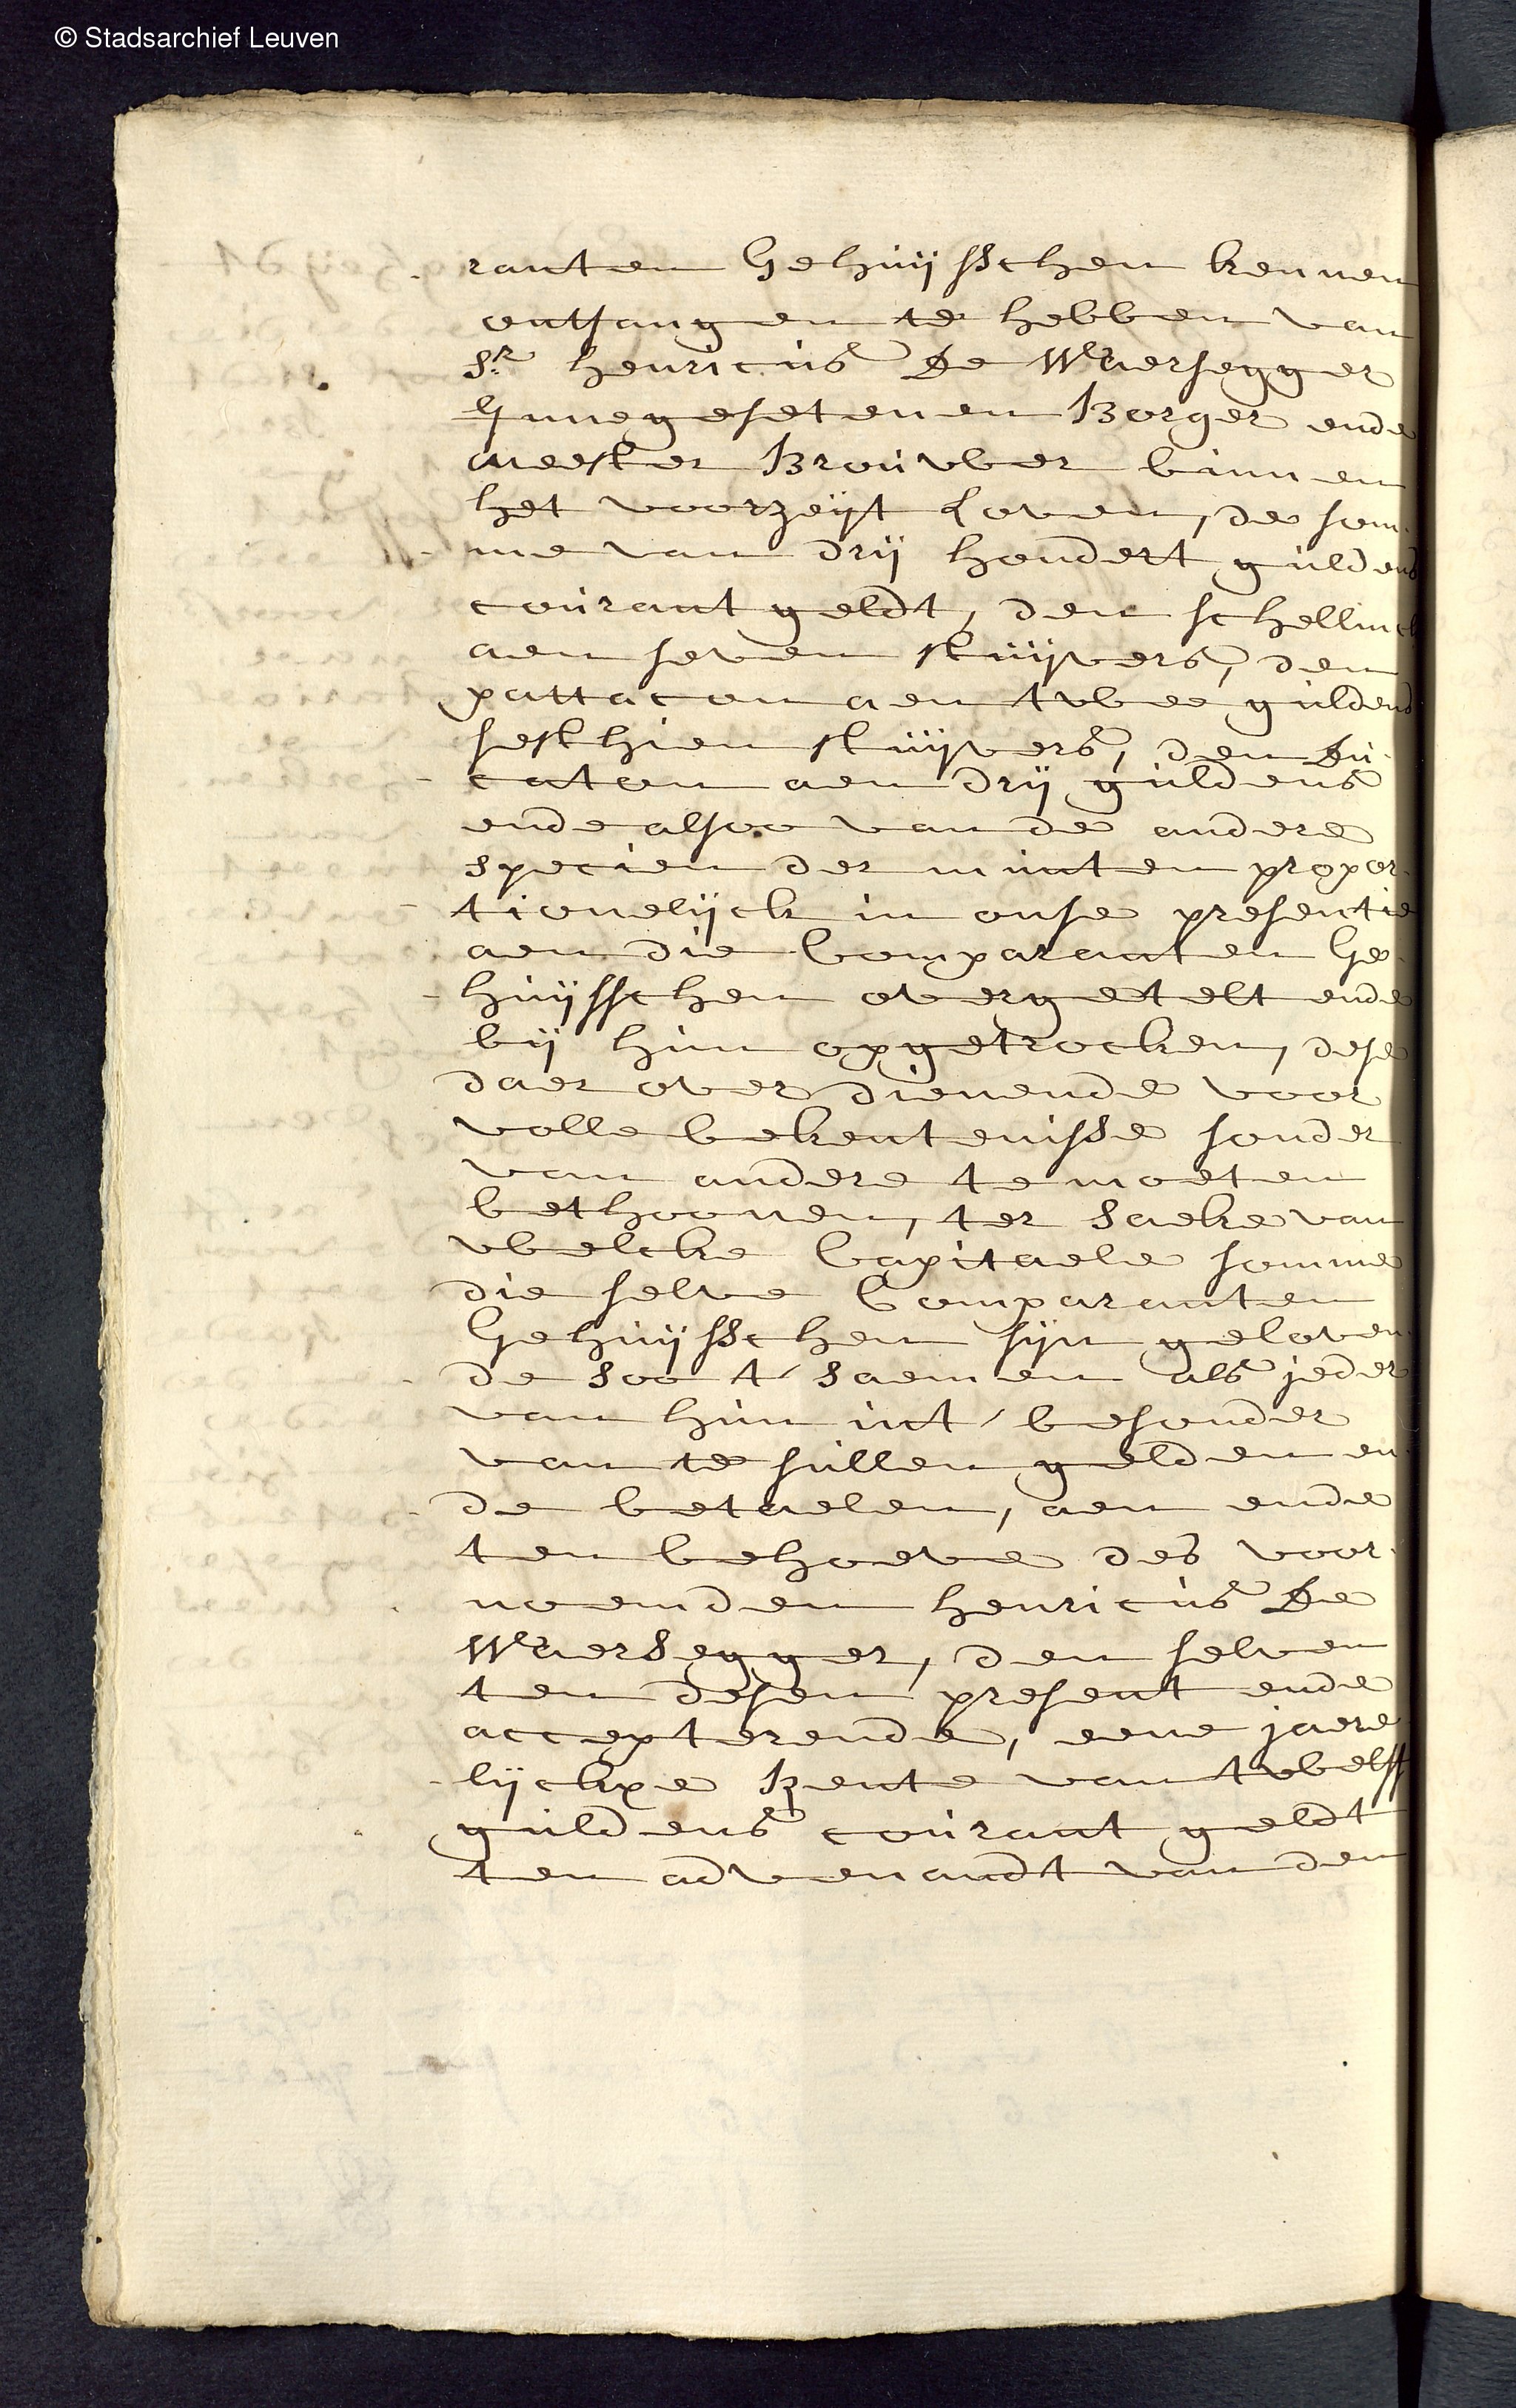 © Stadsarchief Leuven
ranten Gehuijsschen kennen
ontfangen te hebben van
Sr henricus De Waersegger
Innegesetenen Borger ende
meester Brouwer binnen
het voorzeijt Loven, de som-
me van drij hondert guldens
courant geldt, den schellinck
aen seven stuijvers, den
pattacon aen twee guldens
sesthien stuijvers, den Du-
caton aen drij guldens
ende alsoo van de andere
specien der munten propor-
tionelijck in onse presentie
aen die Comparanten Ge-
huijsschen overgetelt ende
bij hun opgetrocken, dese
daer over dienende voor
volle bekentenisse sonder
van andere te moeten
bethoonen, ter saeke van
welcke Capitaele somme
die selve Comparanten
Gehuijsschen sijn geloven-
de soo t'saemen als jeder
van hun int' besonder
van te sullen gelden en-
de betaelen, aen ende
ten behoeve des voor-
noemden henricus De
Waersegger, den selven
ten desen present ende
accepterende, eene jaere-
lijckxe Rente van twelff
guldens courant geldt
ten advenandt van den